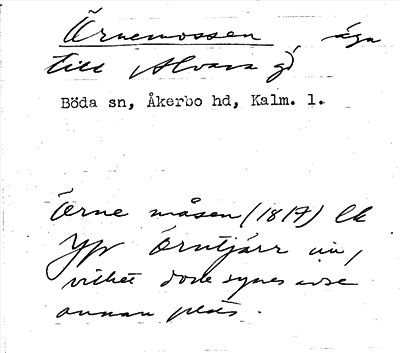 Örnemossen, äga
till Alvara gd
Böda sn, Åkerbo hd, Kalm. l.
Örne måsen (1817) lk
Yp Örntjärr un,
vilket dock synes avse
annan plats.